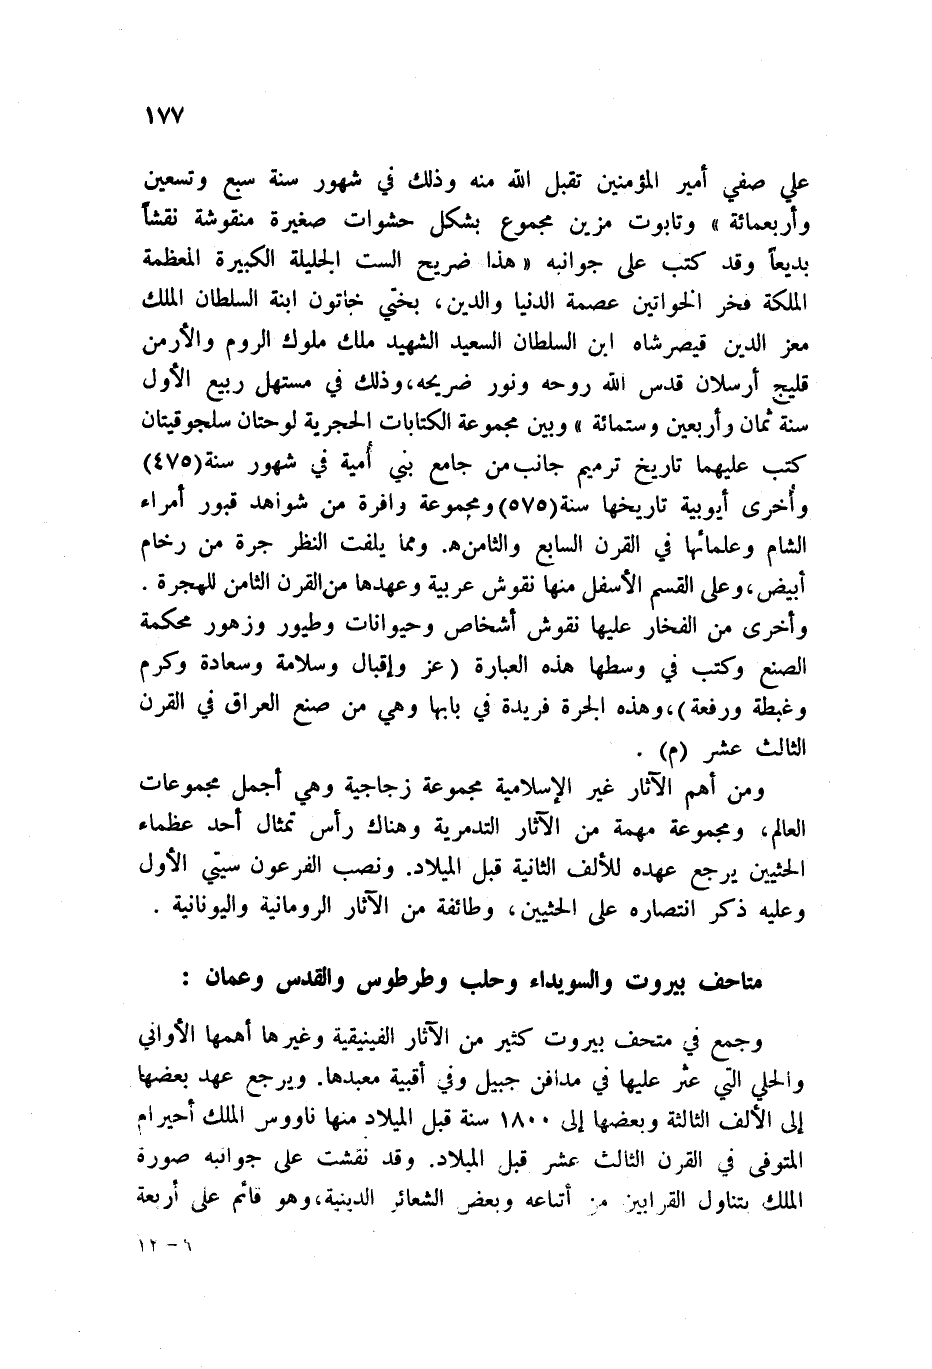 ١٧٧
علي صفي أمير المؤمنين تقبل الله منه وذلك في شهور سنة سبع وتسعين
وأربعمائة » وتابوت مزين مجموع بشكل حشوات صغيرة منقوشة نقشاً
بديعاً وقد كتب على جوانبه « هذا ضريح الست الجليلة الكبيرة المعظمة
الملكة فخر الخواتين عصمة الدنيا والدين، بختي خاتون ابنة السلطان الملك
معز الدين قيصرشاه ابن السلطان السعيد الشهيد ملك ملوك الروم والأرمن
قليج أرسلان قدس الله روحه ونور ضريحه،وذلك في مستهل ربيع الأول
سنة ثمان وأربعين وستمائة » وبين مجموعة الكتابات الحجرية لوحتان سلجوقيتان
كتب عليهما تاريخ ترميم جانب من جامع بني أمية في شهور سنة (٤٧٥)
وأُخرى أيوبية تاريخها سنة (٥٧٥) ومجموعة وافرة من شواهد قبور أمراء
الشام وعلمائها في القرن السابع والثامن ه. ومما يلفت النظر جرة من رخام
أبيض،وعلى القسم الأسفل منها نقوش عربية وعهدها من القرن الثامن للهجرة .
وأخرى من الفخار عليها نقوش أشخاص وحيوانات وطيور وزهور محكمة
الصنع وكتب في وسطها هذه العبارة ( عز وإقبال وسلامة وسعادة وكرم
وغبطة ورفعة )،وهذه الجرة فريدة في بابها وهي من صنع العراق في القرن
الثالث عشر (م) .
ومن أهم الآثار غير الإسلامية مجموعة زجاجية وهي أجمل مجموعات
العالم، ومجموعة مهمة من الآثار التدمرية وهناك رأس تمثال أحد عظماء
الحثيين يرجع عهده للألف الثانية قبل الميلاد. ونصب الفرعون سيتي الأول
وعليه ذكر انتصاره على الحثيين، وطائفة من الآثار الرومانية واليونانية .
متاحف بيروت والسويداء وحلب وطرطوس والقدس وعمان :
وجمع في متحف بيروت كثير من الآثار الفينيقية وغيرها أهمها الأواني
والحلي التي عثر عليها في مدافن جبيل وفي أقبية معبدها. ويرجع عهد بعضها
إلى الألف الثالثة وبعضها إلى ١٨٠٠ سنة قبل الميلاد منها ناووس الملك أحيرام
المتوفى في القرن الثالث عشر قبل الميلاد. وقد نقشت على جوانبه صورة
الملك يتناول القرابين من أتباعه وبعض الشعائر الدينية،وهو قائم على أربعة
٦ – ١٢